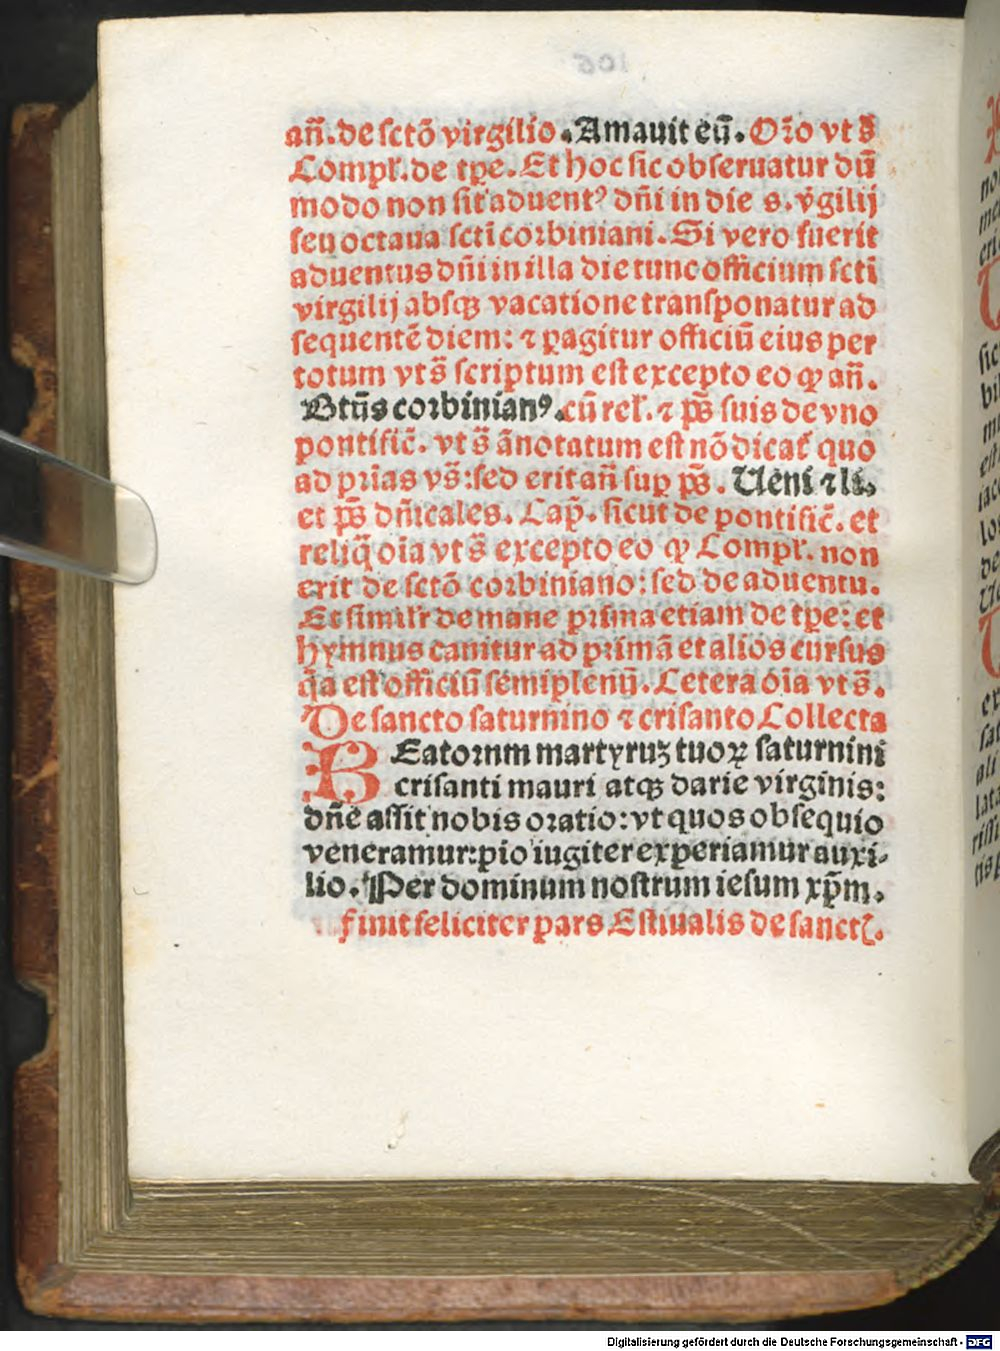 añ. de sctō virgilio. Amauit eū. Oīo vt s̄
Compl'. de tp̄e. Et hoc sic obseruatur dū
modo non sit aduentꝰ dn̄i in die s. v̓gilij
seu octaua scti corbiniani. Si vero fuerit
aduentus dn̄i in illa die tunc officium scti
virgilij absqꝫ vacatione transponatur ad
sequentē diem: ⁊ ꝑagitur officiū eius per
totum vts̄ scriptum est excepto eo ꝙ añ.
Btūs corbinianꝰ. cū rel'. ⁊ ps̄ suis de vno
pontific̄. vt s̄ ānotatum est nō dicat' quo
ad pr̄ias vs̄: sed erit añ sup ps̄. Veni ⁊ li.
et ps̄ dn̄icales. Cap̄. sicut de pontific̄. et
reliq̄ oīa vt s̄ excepto eo ꝙ Compl'. non
erit de sctō corbiniano: sed de aduentu.
Et simil'r de mane prima etiam de tp̄e: et
hymnus canitur ad primā et alios cursus
q̄a est officiū semiplenū. Cetera oīa vt s̄.
De sancto saturnino ⁊ crisanto Collecta
BEatorum martyruꝫ tuoꝝ saturnini
crisanti mauri atqꝫ darie virginis:
dn̄e assit nobis oratio: vt quos obsequio
veneramur: pio iugiter experiamur auxi-
lio. Per dominum nostrum iesum xp̄m.
Finit feliciter pars Estiualis de sanct̄.
106
Digitalisierung gefördert durch die Deutsche Forschungsgemeinschaft - DFG